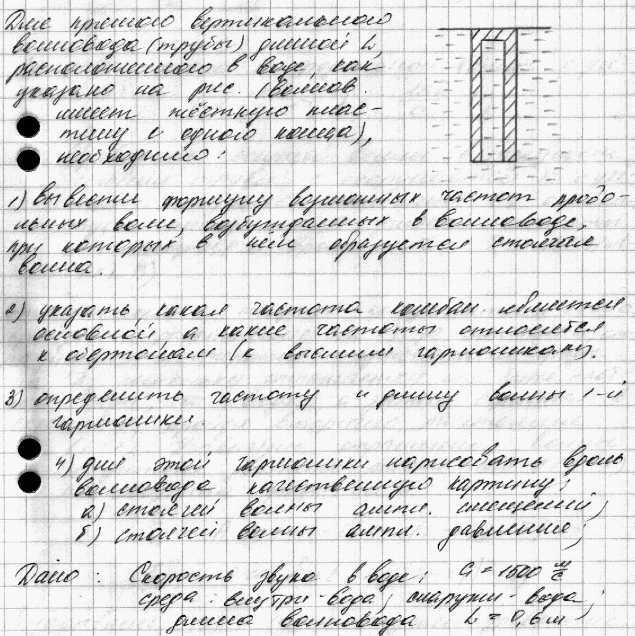 Для прямого вертикального
волновода (трубы) длиной L,
расположенного в воде, как
указано на рис. (волнов.
имеет жёсткую плас-
тину с одного конца),
необходимо:
1) вывести формулу возможных частот продо-
льных волн, возбуждаемых в волноводе,
при которых в нём образуется стоячая
волна.
2) указать какая частота колебан. является
основной а какие частоты относятся
к обертонам (к высшим гармоникам).
3) определить частоту и длину волны 1-й
гармоники.
4) для этой гармоники нарисовать вдоль
волновода качественную картину:
а) стоячей волны ампл. смещений;
б) стоячей волны ампл. давление;
Дано: Скорость звука в воде: C = 1500 м/с
среда: внутри - вода; снаружи - вода;
длина волновода L = 0,6 м